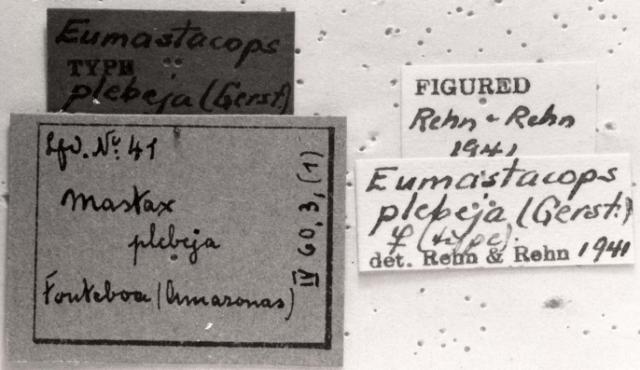 Eumastacops
TYPE
plebeja (Gerst.)
Lfd. Nr. 41
Mastax
plebeja
Fonteboa (Amazonas)
IV 60, 3, (1)
FIGURED
Rehn & Rehn
1941
Eumastacops
plebeja (Gerst.)
♀ (type)
det. Rehn & Rehn 1941